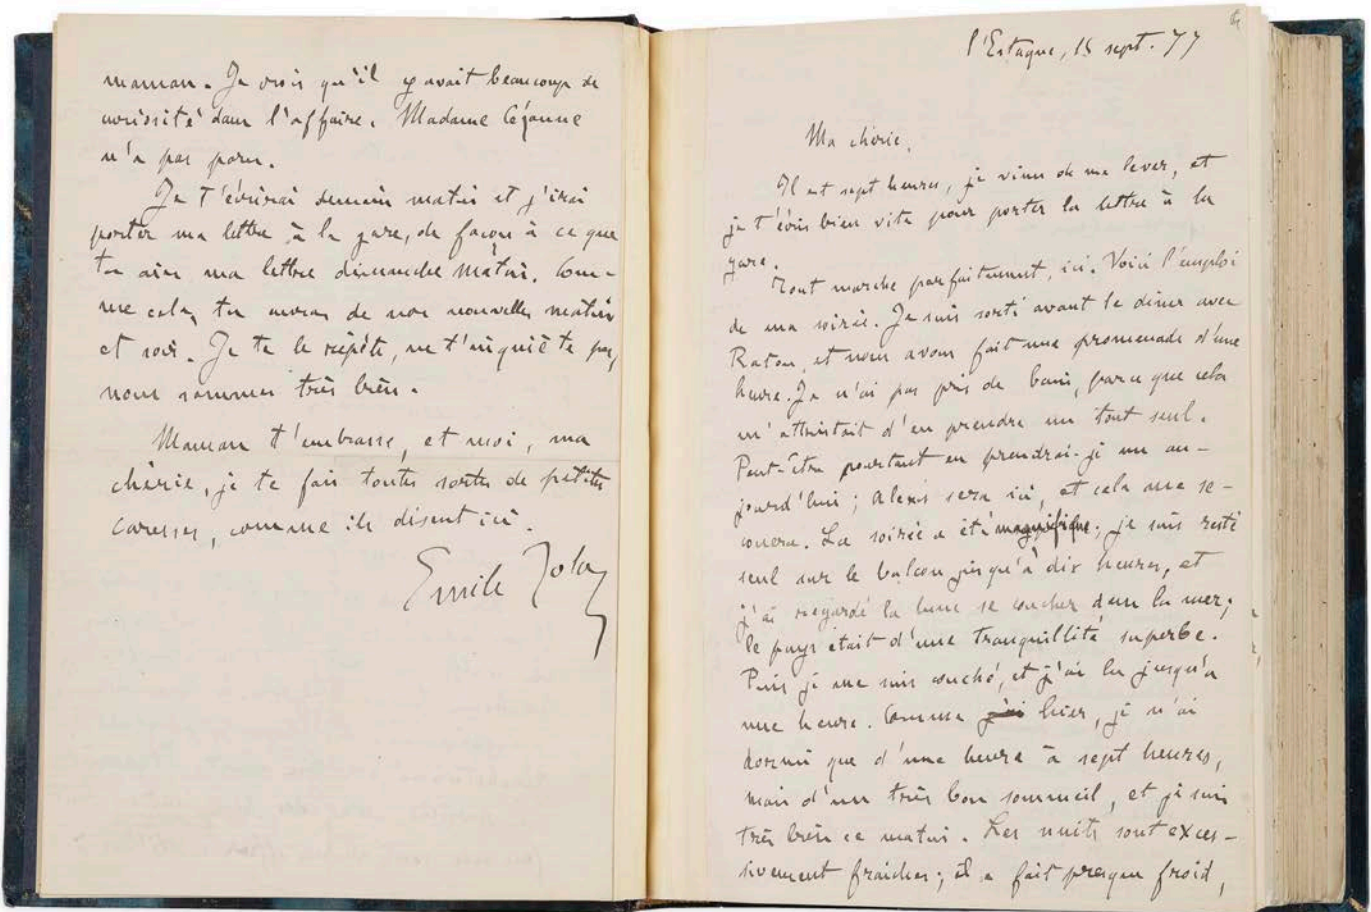 maman. Je crois qu'il y avait beaucoup de
curiosité dans l'affaire. Madame Cézanne
n'a pas paru.
Je t'écrirai demain matin et j'irai
porter ma lettre à la gare, de façon à ce que
tu aies ma lettre dimanche matin. Com-
me cela, tu auras de nos nouvelles matin
et soir. Je te le répète, ne t'inquiète pas,
nous sommes très bien.
Maman t'embrasse, et moi, ma
chérie, je te fais toutes sortes de petites
caresses, comme ils disent ici.
Emile Zola
l'Estaque, 15 sept. 77
Ma chérie,
Il est sept heures, je viens de me lever, et
je t'écris bien vite pour porter la lettre à la
gare.
Tout marche parfaitement, ici. Voici l'emploi
de ma soirée. Je suis sorti avant le dîner avec
Raton, et nous avons fait une promenade d'une
heure. Je n'ai pas pris de bain, parce que cela
m'attristait d'en prendre un tout seul.
Peut-être pourtant en prendrai-je un au-
jourd'hui ; Alexis sera ici, et cela me se-
couera. La soirée a été magnifique ; je suis resté
seul sur le balcon jusqu'à dix heures, et
j'ai regardé la lune se coucher dans la mer ;
le pays était d'une tranquillité superbe.
Puis je me suis couché, et j'ai lu jusqu'à
une heure. Comme j'ai hier, je n'ai
dormi que d'une heure à sept heures,
mais d'un très bon sommeil, et je suis
très bien ce matin. Les nuits sont exces-
sivement fraîches ; il a fait presque froid,